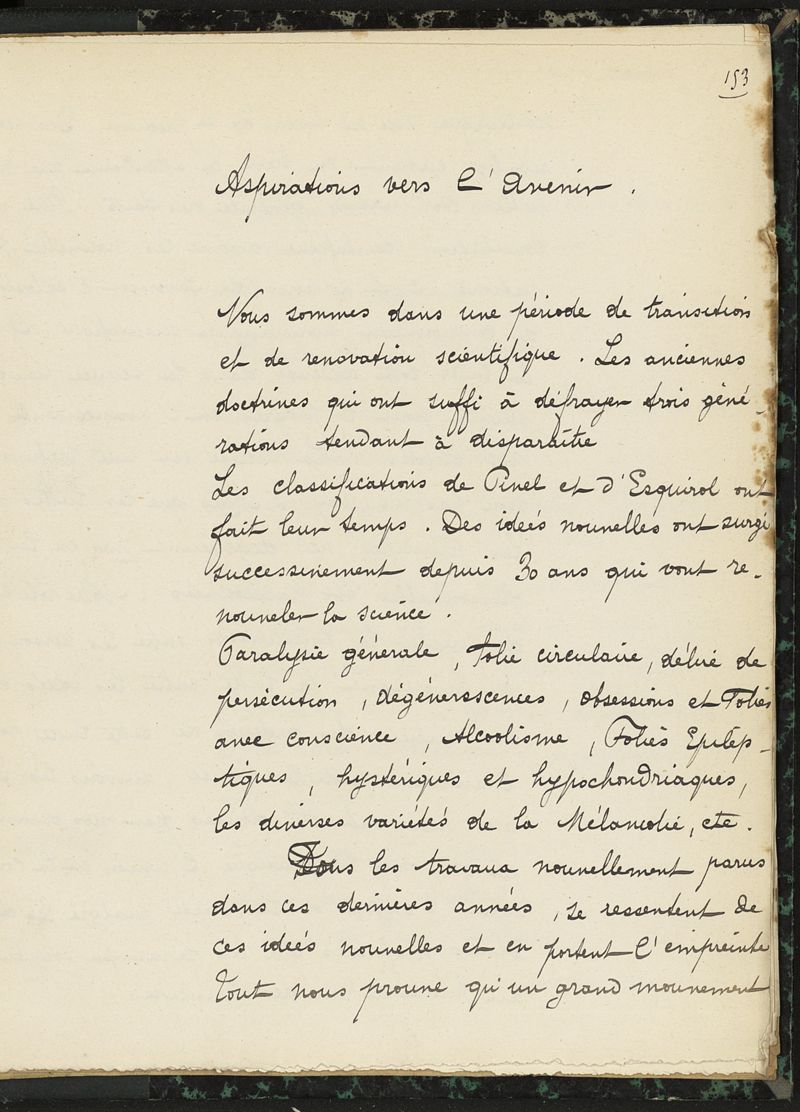 153
Aspirations vers l'avenir.
Nous sommes dans une période de transition
et de renovation scientifique. Les anciennes
doctrines qui ont suffi à défrayer trois géné-
rations tendant à disparaître
Les classifications de Pinel et d'Esquirol ont
fait leur temps. Des idées nouvelles ont surgi
successivement depuis 30 ans qui vont re-
nouveler la science.
Paralysie générale, folie circulaire, délire de
persécution, dégénérescences, obsessions et Folies
avec conscience, Alcoolisme, Folies Epilep-
tiques, hystériques et hypochondriaques,
les diverses variétés de la Mélancolie, etc.
Tous les travaux nouvellement parus
dans ces dernières années, se ressentent de
ces idées nouvelles et en portent l'empreinte
Tout nous prouve qu'un grand mouvement